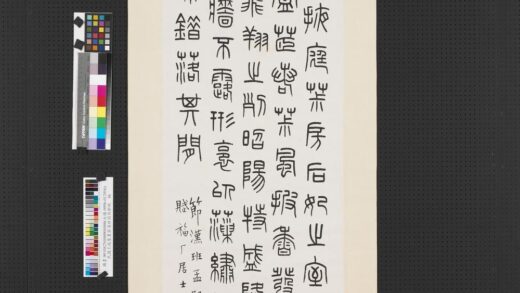 掖庭茮房后妃之室
茝若茮風披香發
飛翔之列昭陽特盛隆
牆不露形裛以藻繡
錯落其間
節漢班孟
賦福厂居士